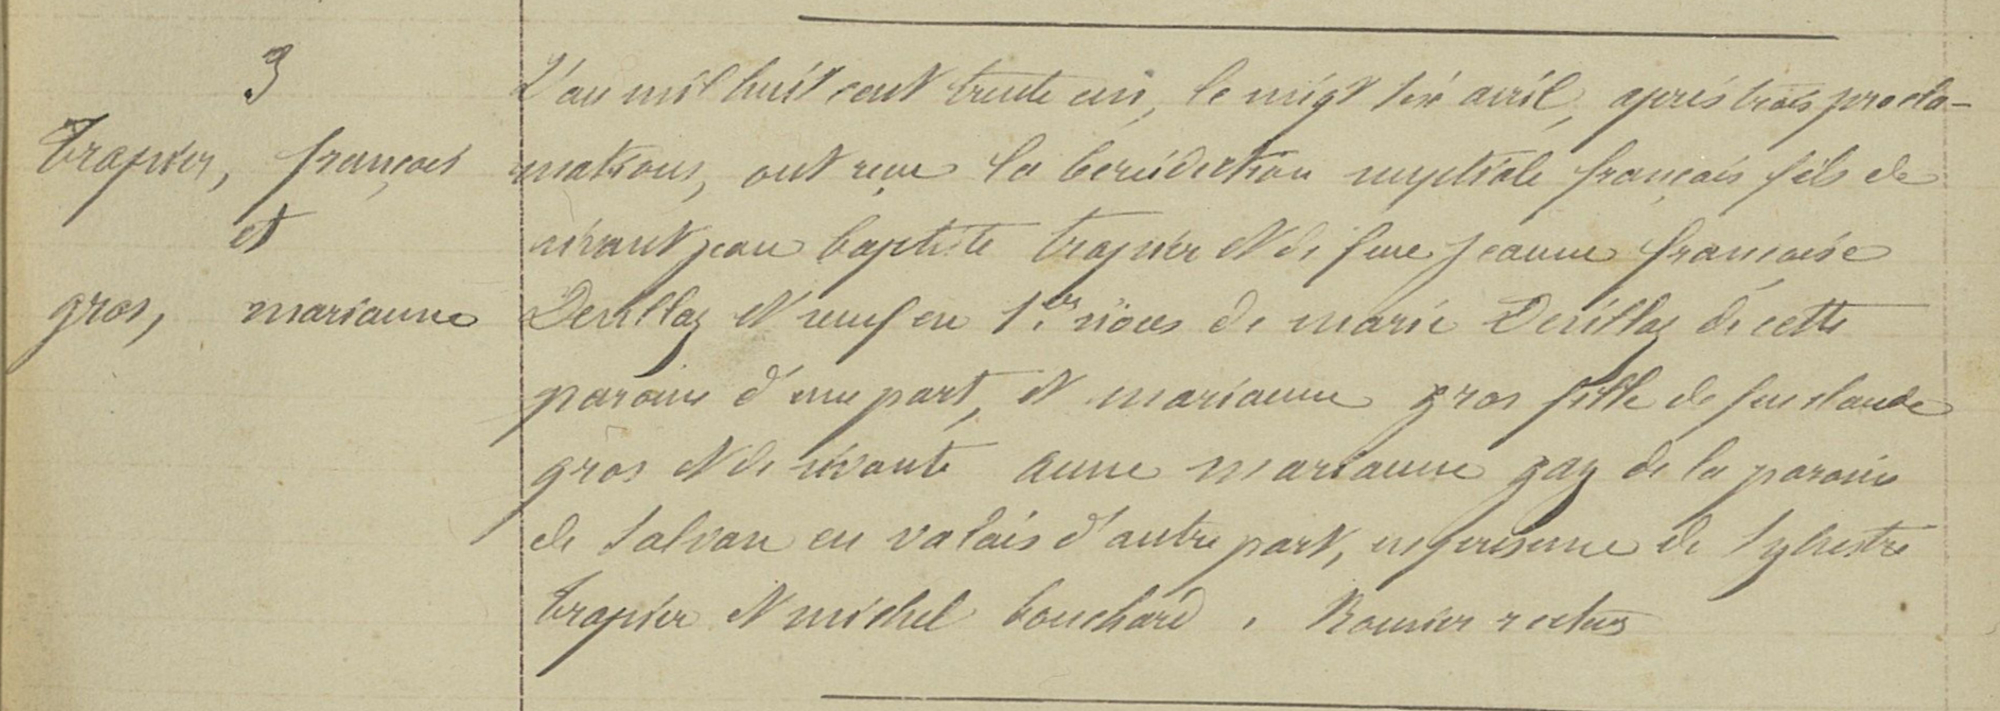 3
trapier, françois
et
gros, marianne
L'an mil huit cent trente un, le vingt six avril, après trois procla-
mations, ont reçu la bénédiction nuptiale françois fils de
vivant jean baptiste trapier et de feue jeanne françoise
Devillaz et veuf en 1.er nôces de marie Devillaz de cette
paroisse d'une part, et marianne gros fille de feu claude
gros et de vivante anne marianne gay de la paroisse
de Salvan en valais d'autre part, en présence de Sylvestre
trapier et michel bouchard. recteur